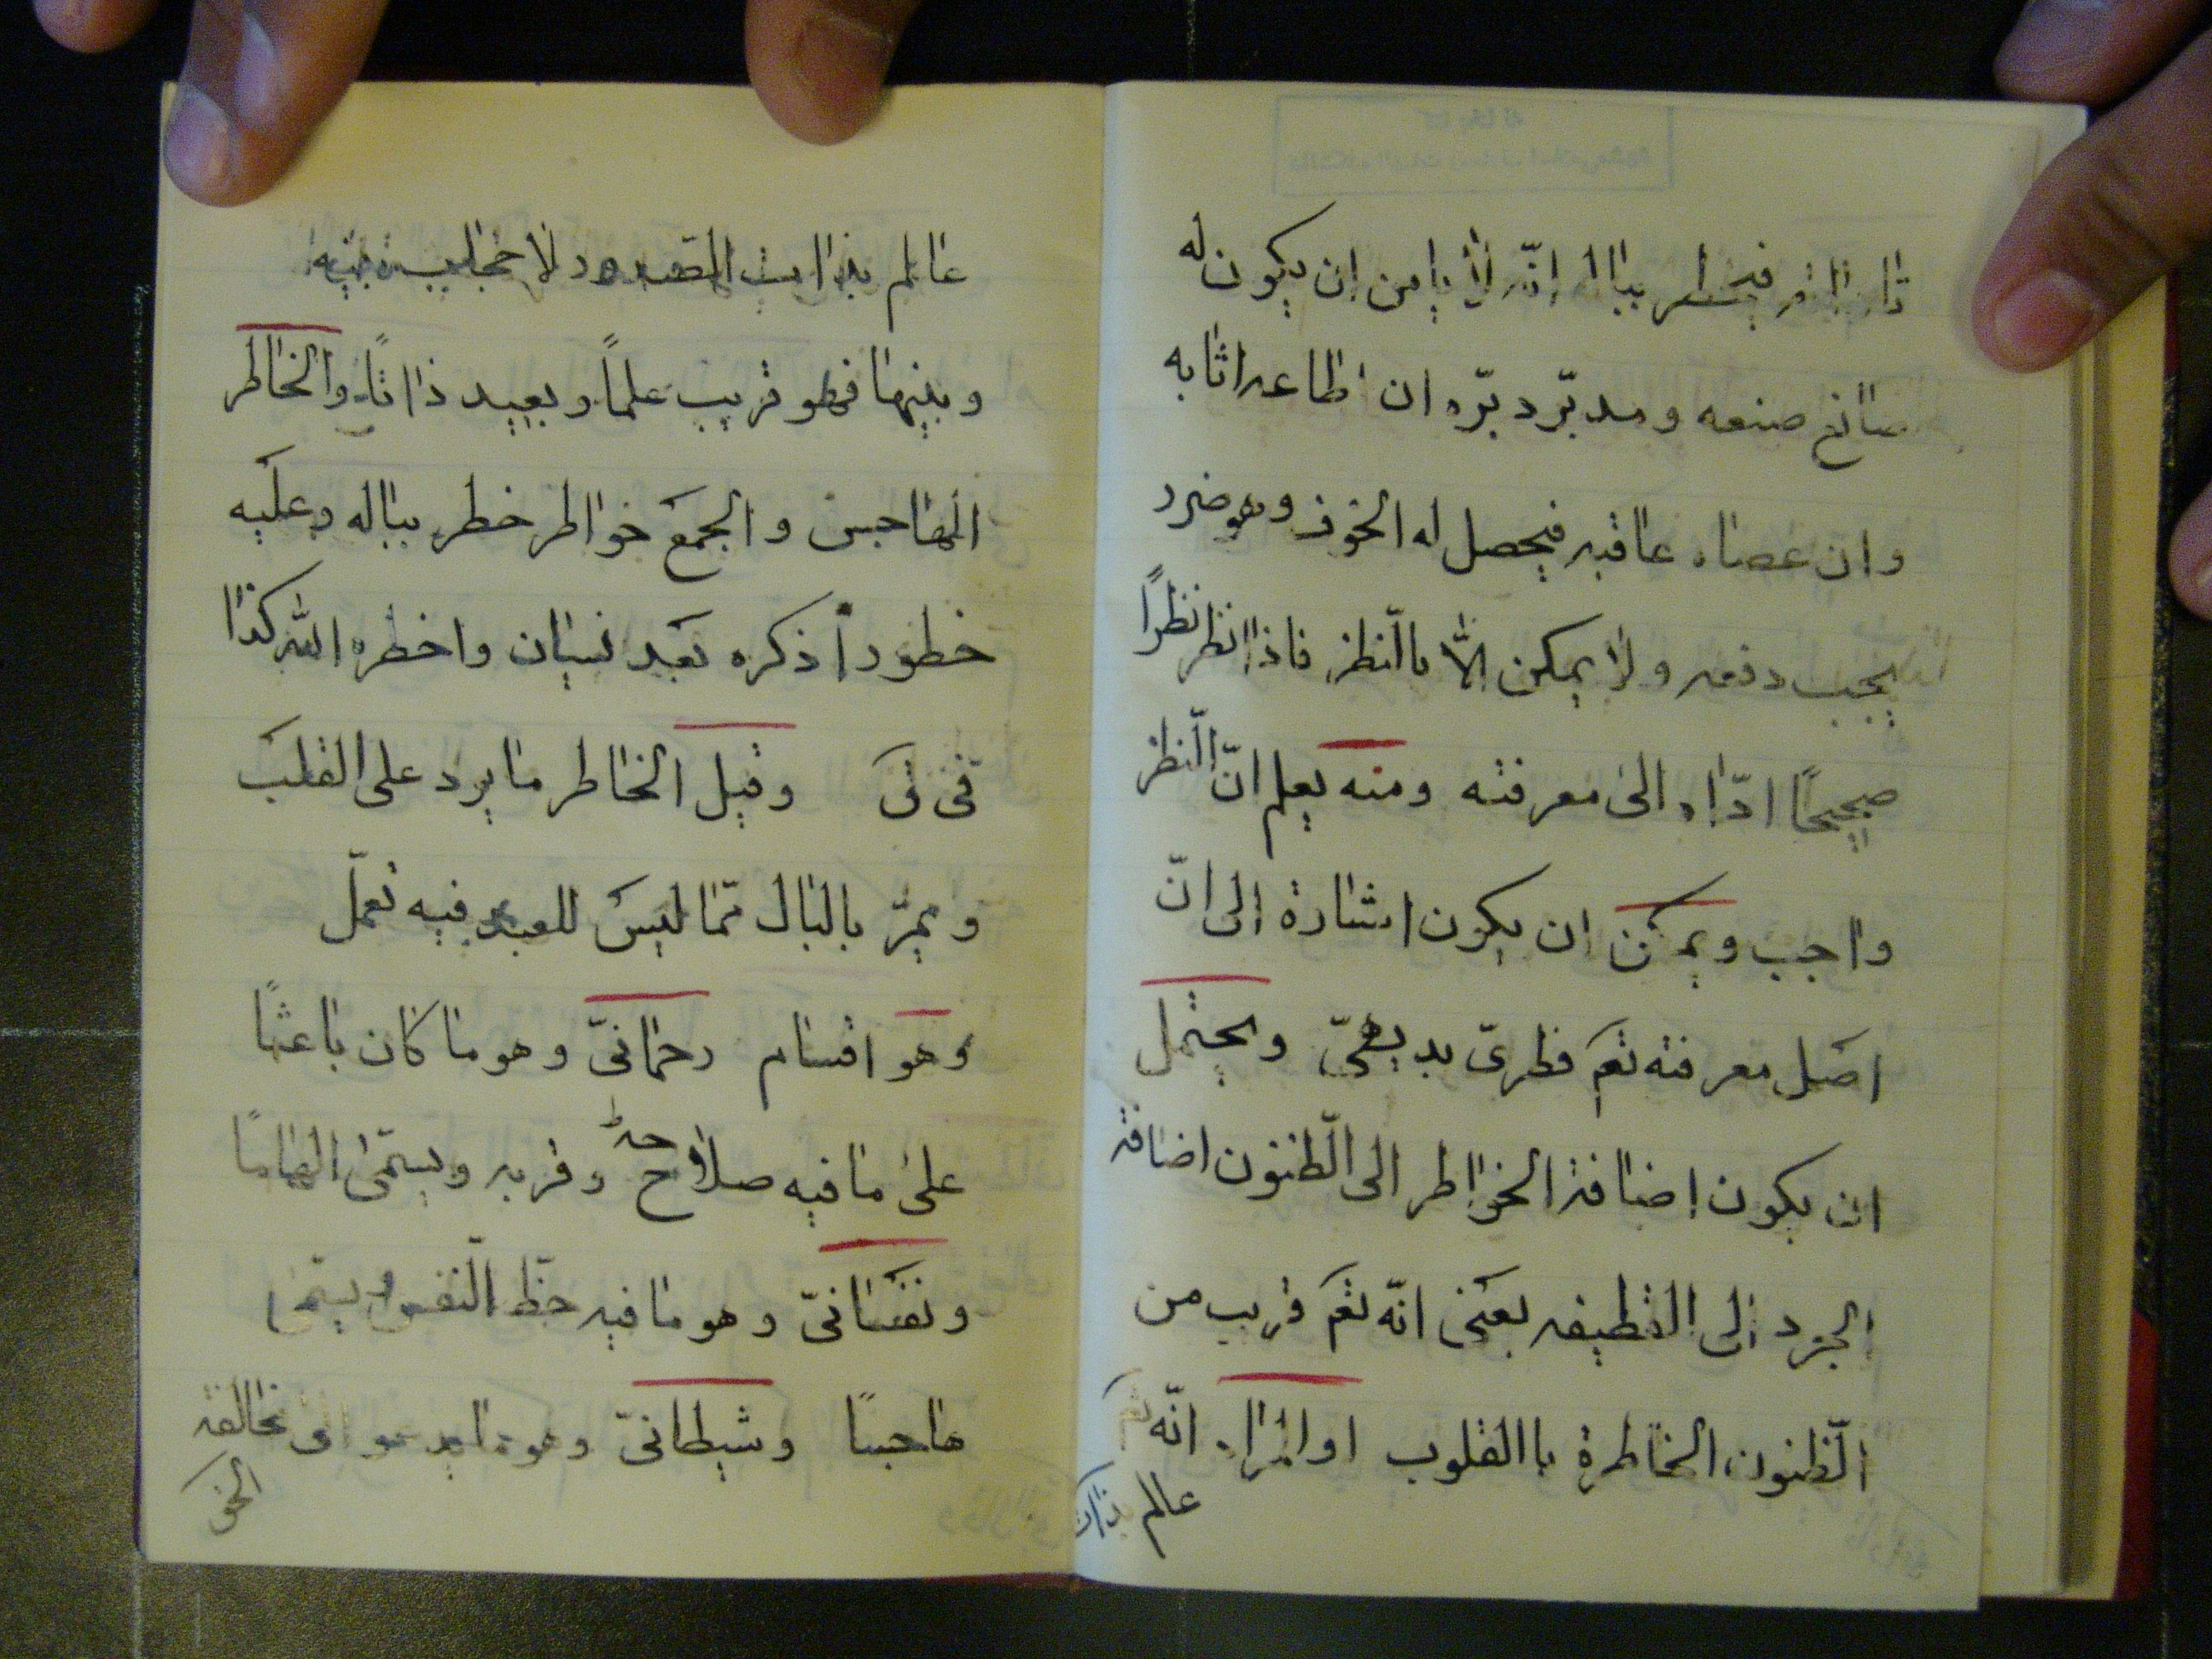 فيخطر بباله انّه لا يامن ان يكون له
صانع صنعه ومدبّر دبّره ان اطاعه اثابه
وان عصاه عاقبه فيحصل له الخوف وهو ضرر
يجب دفعه ولا يمكن الّا باالّنظر فاذا نظر نظراً
صحيحًا ادّاه الى معرفته ومنه يعلم انّ الّنظر
واجب ويمكن ان يكون اشارة الى انّ
اصل معرفته تعم فطرىّ بديهىّ ويحتمل
ان يكون اضافة الخواطر الى الّظنون اضافة
الجرد الى القطيفه بمعنى انّه تعم قريب من
الّظنون الخاطرة باالقلوب او المراد انّه تعم
عالم بذات
عالم بذات الصدور لا حجاب بينه
وبينها فهو قريب علماً وبعيد ذاتاً والخاطر
الهاجس والجمع خواطر خطر بباله وعليه
خطوراً ذكره بعد نسيان واخطره الله كذا
فى ق وقيل الخاطر ما يرد على القلب
ويمرّ بالبال ممّا ليس للعبد فيه تعمّل
وهو اقسام رحمانىّ وهو ما كان باعثًا
على ما فيه صلاح وقربه ويسمّى الهامًا
ونفسانىّ وهو ما فيه حظّ الّنفس ويسمّى
هاجسًا وشيطانىّ وهو ما يدعو الى مخالفة
الحق